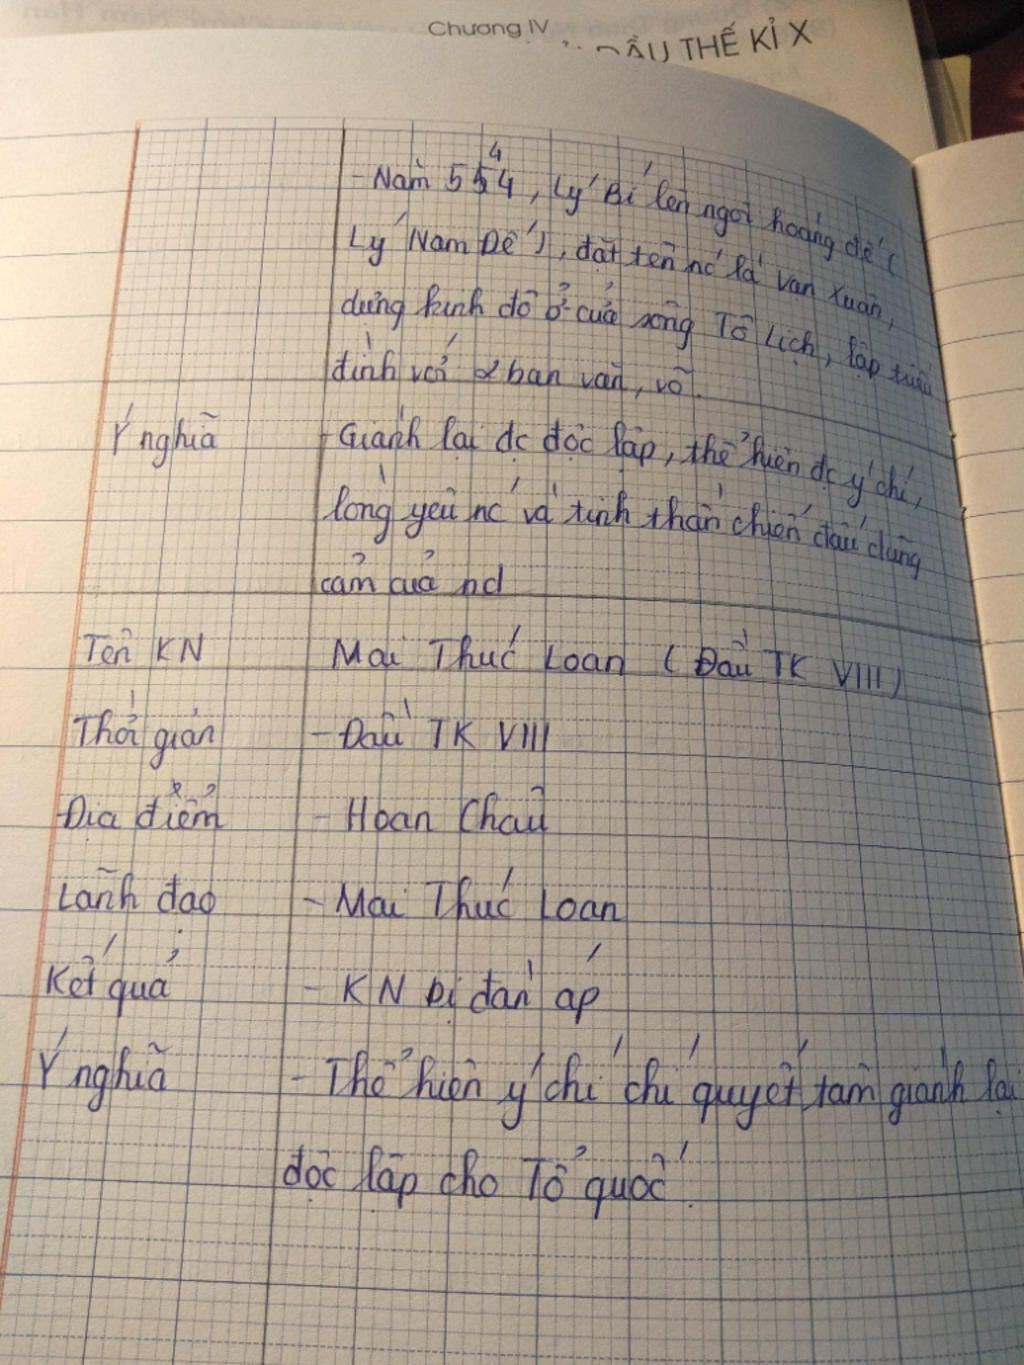 Chương IV
ĐẦU THẾ KỈ X
- Năm 544, Lý Bí lên ngôi hoàng đế (
Lý Nam Đế), đặt tên nc là Vạn Xuân,
dựng kinh đô ở cửa sông Tô Lịch, lập triều
đình với 2 ban văn, võ.
Ý nghĩa - Giành lại đc độc lập, thể hiện đc ý chí,
lòng yêu nc và tinh thần chiến đấu dũng
cảm của nd
Tên KN Mai Thúc Loan (Đầu TK VIII)
Thời gian - Đầu TK VIII
Địa điểm - Hoan Châu
Lãnh đạo - Mai Thúc Loan
Kết quả - KN bị đàn áp
Ý nghĩa - Thể hiện ý chí chí quyết tâm giành lại
độc lập cho Tổ quốc.